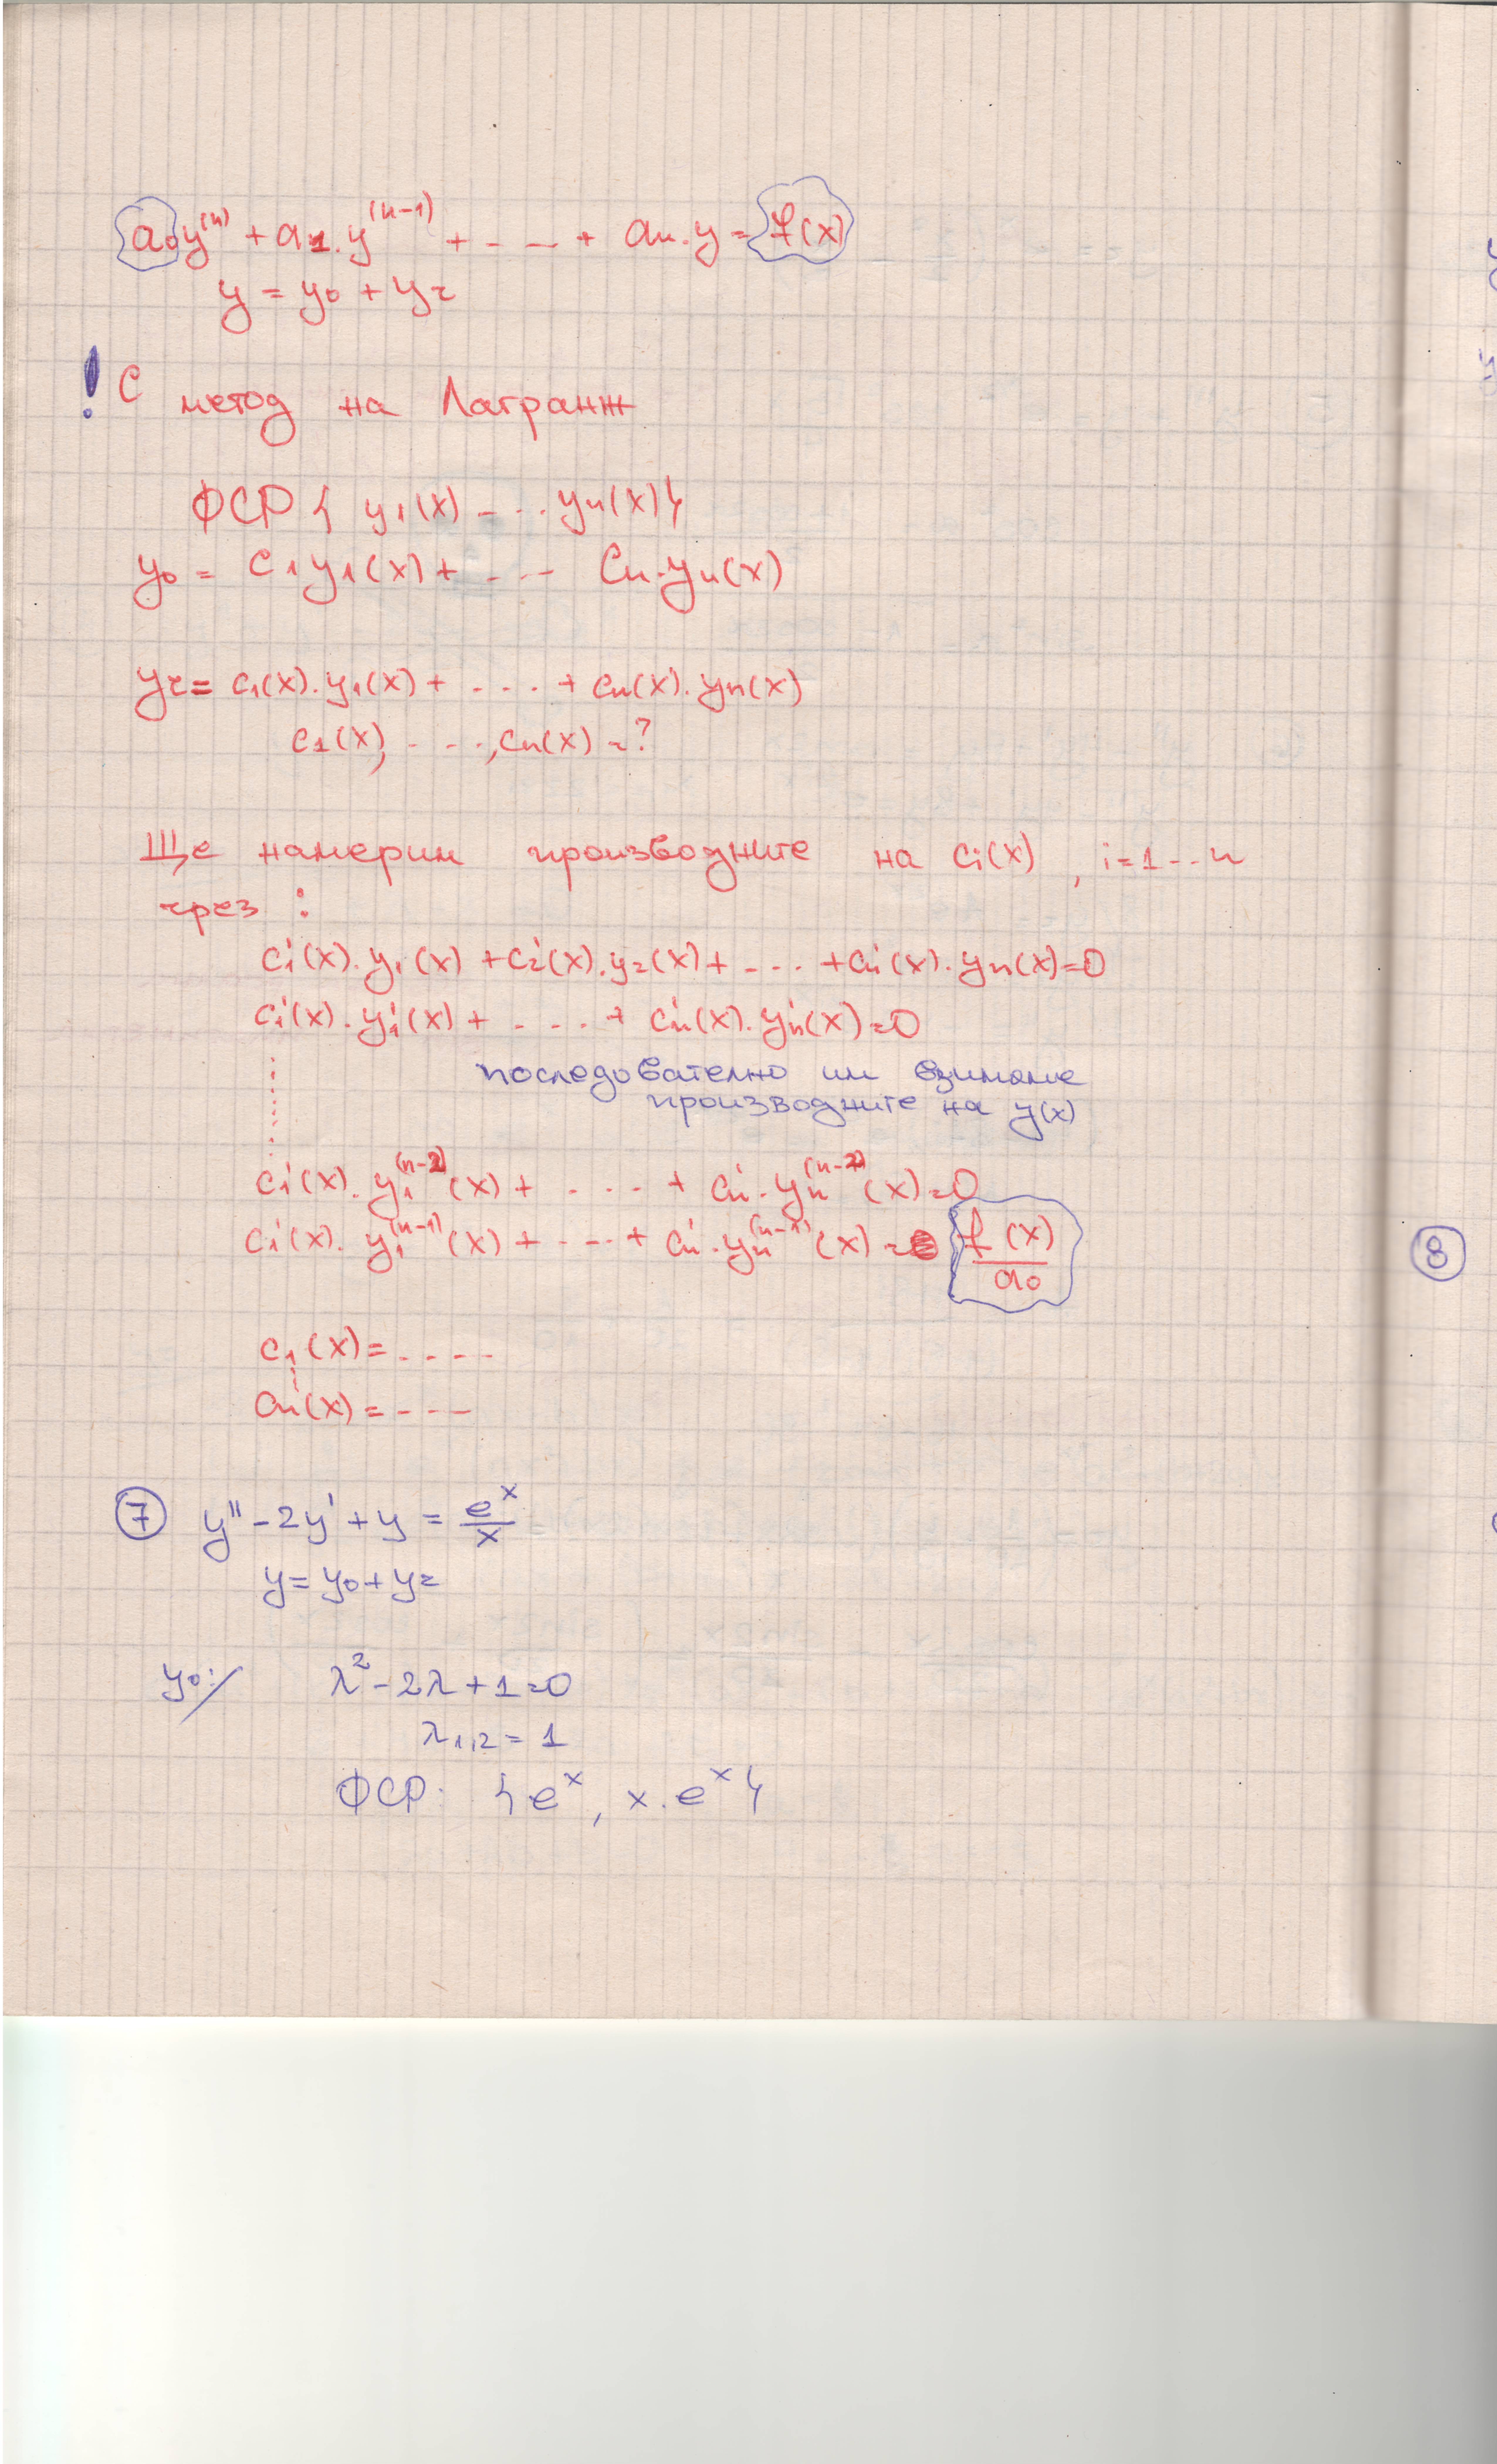 a₀y⁽ⁿ⁾ + a₁.y⁽ⁿ⁻¹⁾ + - — + aₙ.y = f(x)
y = y₀ + yг
! С метод на Лагранж
ФСР { y₁(x) - . . . yₙ(x)}
y₀ = C₁y₁(x) + - . . – Cₙ.yₙ(x)
yг = c₁(x).y₁(x) + - . . . + cₙ(x).yₙ(x)
c₁(x), - - ., cₙ(x) = ?
Ще намерим производните на cᵢ(x) , i = 1 - - n
чрез :
c₁'(x).y₁(x) + c₂'(x).y₂(x) + - . . . + cₙ'(x).yₙ(x) = 0
c₁'(x).y₁'(x) + - . . . + cₙ'(x).yₙ'(x) = 0
последователно им взимаме
производните на y(x)
c₁'(x).y₁⁽ⁿ⁻²⁾(x) + - . . . + cₙ'.yₙ⁽ⁿ⁻²⁾(x) = 0
c₁'(x).y₁⁽ⁿ⁻¹⁾(x) + - . . . + cₙ'.yₙ⁽ⁿ⁻¹⁾(x) = f(x)/a₀
c₁'(x) = - - - -
cₙ'(x) = - - - -
⑦ y'' - 2y' + y = eˣ/x
y = y₀ + yг
y₀:/ λ² - 2λ + 1 = 0
λ₁,₂ = 1
ФСР: {eˣ, x.eˣ}
⑧